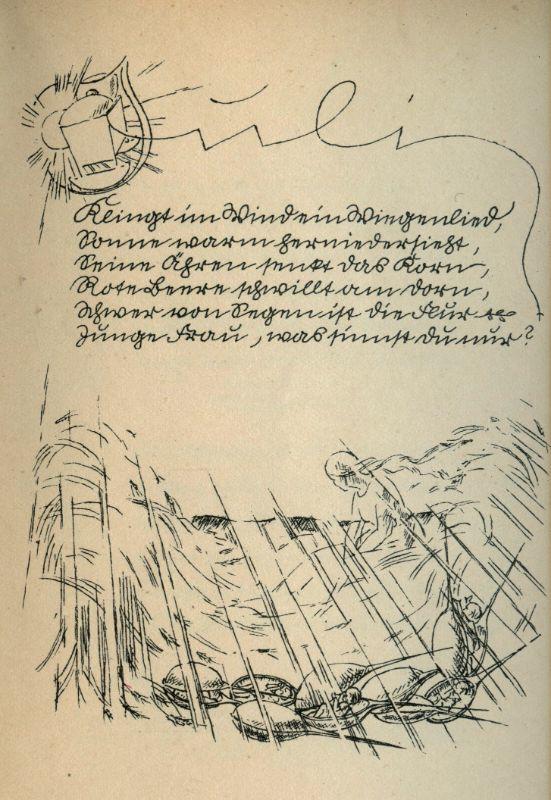 Juli
Klingt im Wind ein Wiegenlied,
Sonne warm herniedersieht,
Seine Ähren senkt das Korn,
Rote Beere schwillt am Dorn,
Schwer von Segen ist die Flur –
Junge Frau, was sinnst du nur?